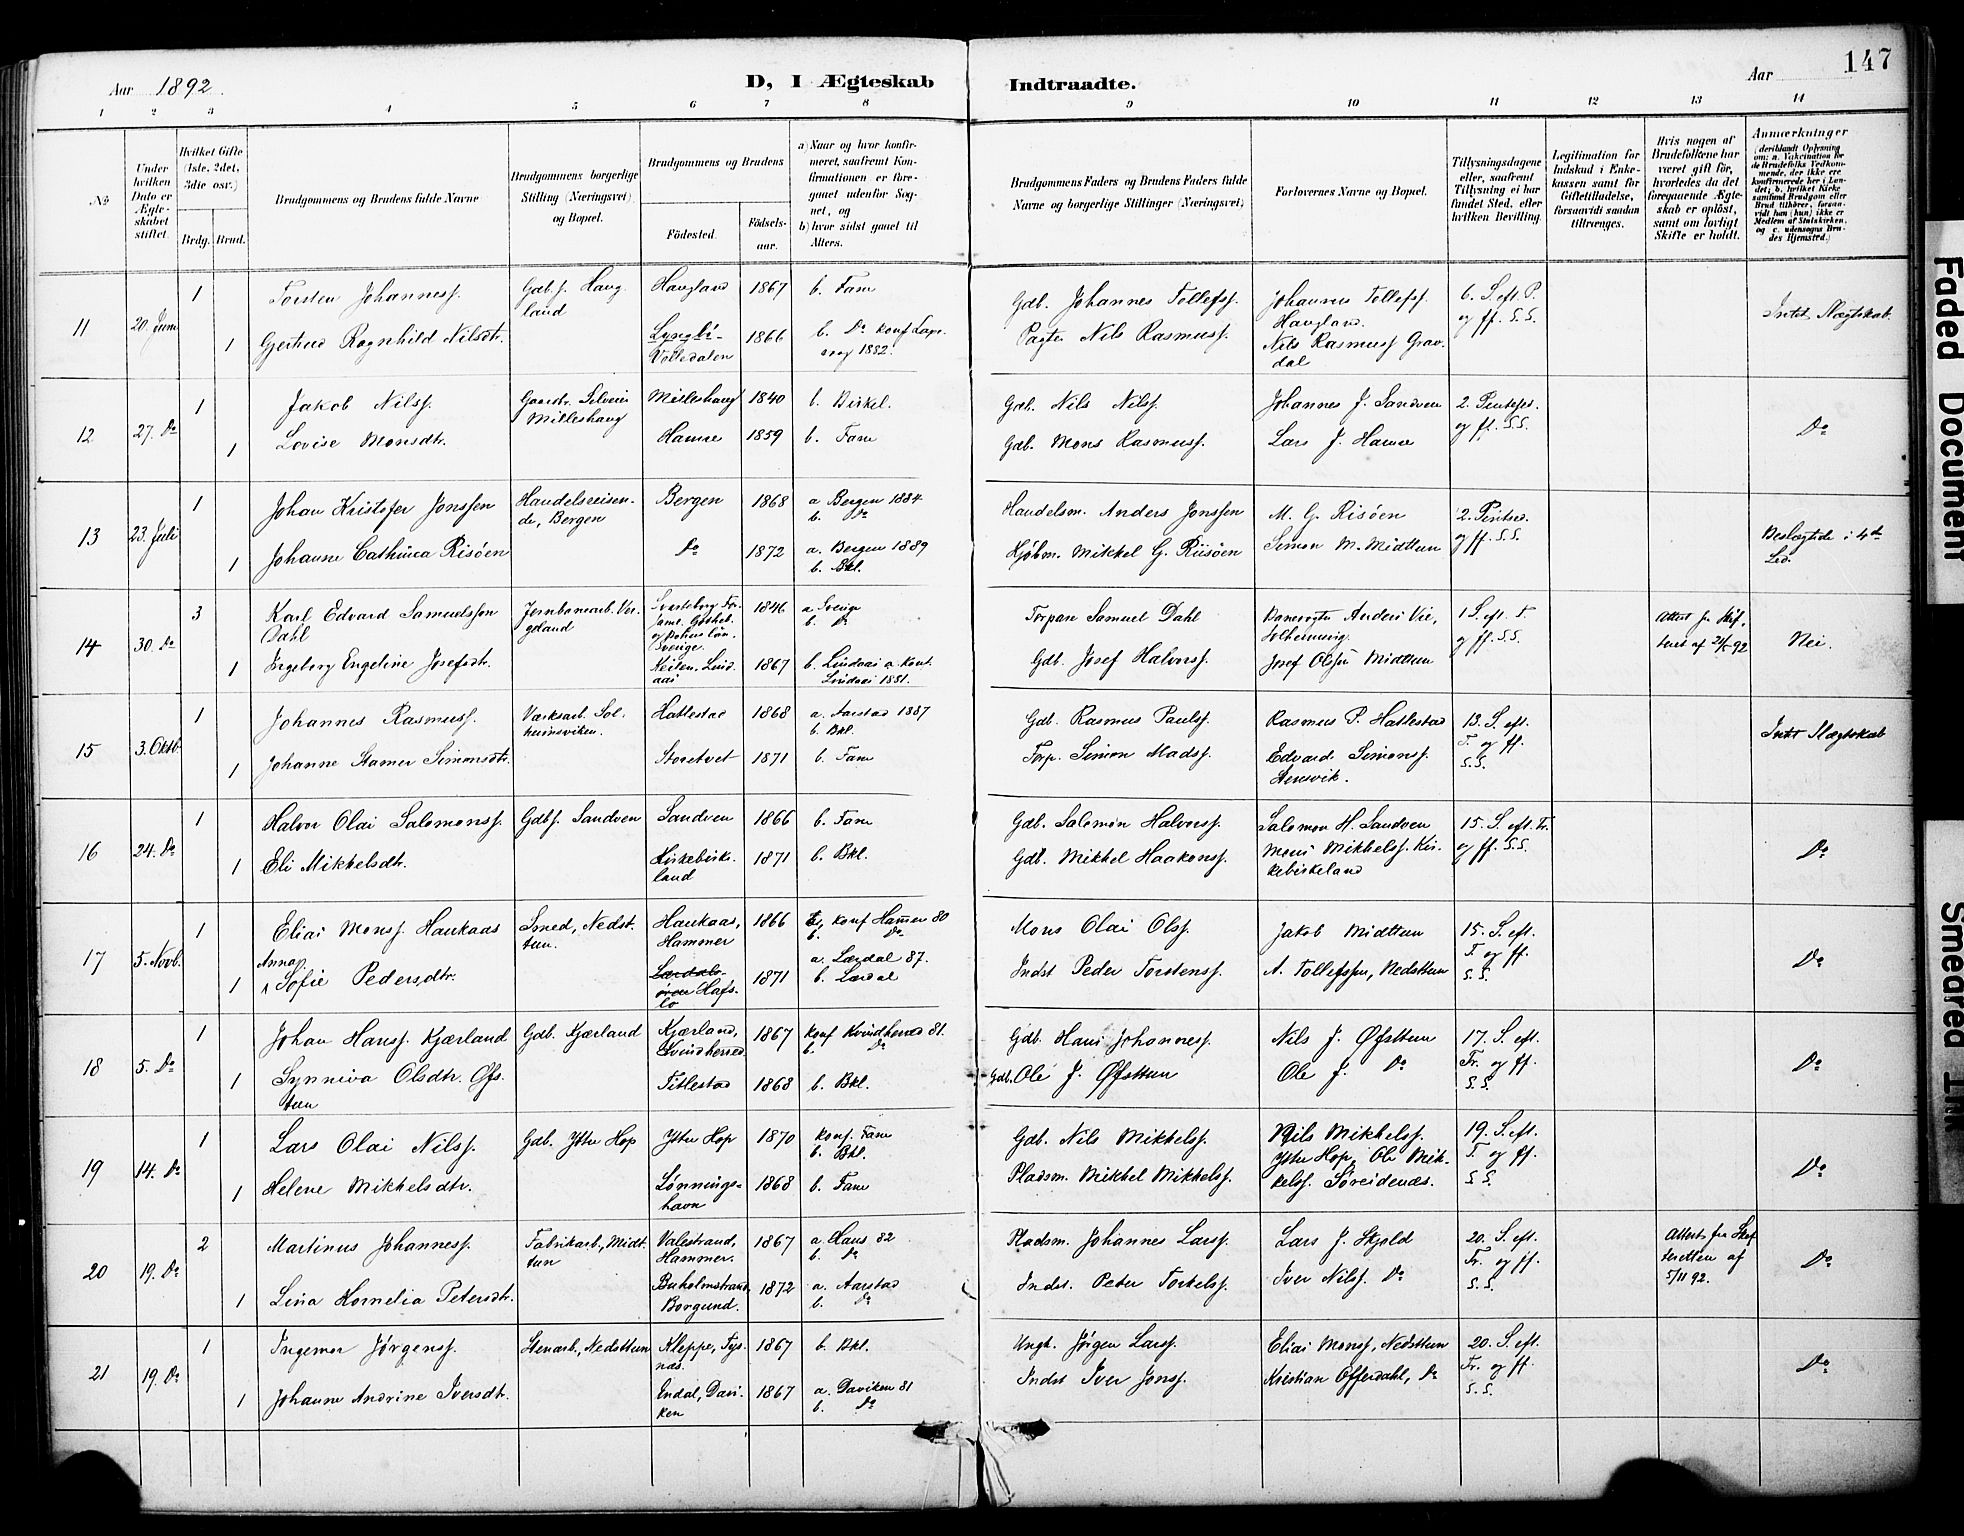 Aar 1892.
D, I Ægteskab
Indtraadte.
Aar
147
1 2 3 4 5 6 7 8 9 10 11 12 13 14
No
Under hvilken Dato er Ægteskabet stiftet.
Hvilket Gifte (1ste, 2det, 3die osv.)
Brdg. Brud.
Brudgommens og Brudens fulde Navne
Brudgommens borgerlige Stilling (Næringsvei) og Bopæl.
Brudgommens og Brudens
Födested.
Födselsaar.
a) Naar og hvor konfirmeret, saafremt Konfirmationen er foregaaet udenfor Sognet, og
b) hvor sidst gaaet til Alters.
Brudgommens Faders og Brudens Faders fulde Navne og borgerlige Stillinger (Næringsvei)
Forlovernes Navne og Bopæl.
Tillysningsdagene eller, saafremt Tillysning ei har fundet Sted, efter hvilken Bevilling.
Legitimation for Indskud i Enkekassen samt for Giftetilladelse, forsaavidt saadan tiltrænges.
Hvis nogen af Brudefolkene har været gift för, hvorledes da det foregaaende Ægteskab er oplöst, samt om lovligt Skifte er holdt.
Anmærkninger (deriblandt Oplysning om: a. Vakcination for de Brudefolks Vedkommende, der ikke ere konfirmerede her i Landet; b. hvilket Kirkesamfund Brudgom eller Brud tilhörer, forsaavidt han (hun) ikke er Medlem af Statskirken, og c. udensogns Brudes Hjemsted.)
11 20. Juni 1 Torsten Johannesf. Gdbf. Haugland Haugland 1867 b. Fane Gdb. Johannes Tollefsf. Johannes Tollefsf. Haugland. 6. S. eft. P. og ff. S.S. Intet Slægtskab.
1 Gjertrud Ragnhild Nilsdt. 1866 b. Do konf. 1882. Nils Rasmusf. Nils Rasmusf Gravdal
12 27. Do 1 Jakob Nilsf. Milleshaug Milleshaug 1840 b. Birkel. Gdb. Nils Nilsf. Johannes J. Sandven 2. Pintsed. og ff. S.S. Do
1 Lovise Monsdtr. Hamre 1859 b. Fane Gdb. Mons Rasmusf. Lars J. Hamre
13 23. Juli 1 Johan Kristofer Jonssen Handelsreisende, Bergen Bergen 1868 a Bergen 1884 b. Do Handelsm. Anders Jonssen M. G. Risöen 2. Pintsed. og ff. S.S. Beslægtede i 4de Led.
1 Johanne Cathinca Risöen Do 1872 a. Bergen 1889 b. Bkl. Kjöbm. Mikkel G. Riisöen Simon M. Midttun
14 30. Do 3 Karl Edvard Samuelsson Dahl Jernbanearb. 1846 a Sverige b. Do Torpare Samuel Dahl Anders Vie, 1 S. eft. T. og ff. S.S. Attest fra Skifteret af 92 Nei.
1 Ingeborg Engeline Josefsdt. Lindaas 1867 b. Lindaas a. konf. Lindaas 1881. Gdb. Josef Halvorsf. Josef Olsen Midttun
15 3. Oktb. 1 Johannes Rasmusf. Værksarb. Solheimsviken. Hatlestad 1868 a. Aarstad 1887 b. Bkl. Gdb. Rasmus Paulsf. Rasmus P. Hatlestad 13. S. eft. T. og ff. S.S. Intet Slægtskab
1 Johanne Stamer Simonsdtr. Storetvet 1871 b. Fane Torp. Simon Madsf. Edvard Simonsf. Stensvik.
16 24. Do 1 Halvor Olai Salomonsf. Gdbf. Sandven Sandven 1866 b. Fane Gdb. Salomon Halvorsf. Salomon H. Sandven 15. S. eft. Tr. og ff. S.S. Do
1 Eli Mikkelsdtr. Kirkebirkeland 1871 b. Bkl. Gdb. Mikkel Haakonsf. Mons Mikkelsf. Kirkebirkeland
17 5. Novb. 1 Elias Monsf. Haukaas Smed, Nedsttun. Haukaas, Hammer 1866 konf Hammer 80 b. Do Mons Olai Olsf. Jakob Midttun 15. S. eft. T. og ff. S.S. Do
1 Anna Sofie Pedersdtr. Lærdalsören Hafslo 1871 a. Lærdal 87. b. Lærdal Indst Peder Torstensf. A. Tollefssen, Nedsttun
18 5. Do 1 Johan Hansf. Kjærland Gdb. Kjærland Kjærland, Kvindherred 1867 konf Kvindherred 81. b. Do Gdb. Hans Johannesf. Nils J. Øfsttun 17. S. eft. Tr. og ff. S.S. Do
1 Synneva Olsdtr. Øfsttun Titlestad 1868 b. Bkl. Gdb. Ole J. Øfsttun Ole J. Do
19 14. Do 1 Lars Olai Nilsf. Gdb. Ytter Hop Ytter Hop 1870 konf. Fane b. Bkl. Gdb. Nils Mikkelsf. Nils Mikkelsf. Ytter Hop, Ole Mikkelsf. Söreidenæs. 19. S. eft. T. og ff. S.S. Do
1 Helene Mikkelsdtr. Lönningshavn 1868 b. Fane Pladsm. Mikkel Mikkelsf.
20 19. Do 2 Martinus Johannesf. Fabrikarb., Midttun Valestrand, Hammer. 1867 a. Haus 82 b. Do Pladsm. Johannes Larsf. Lars J. Skjold 20. S. eft. Tr. og ff. S.S. Attest fra Skifteretten af 5/11 92. Do
1 Lina Kornelia Petersdtr. Buholmstrand, Borgund. 1872 a. Aarstad b. Do Indst. Peter Torkelsf. Iver Nilsf. Do
21 19. Do 1 Ingemor Jørgensf. Stenarb., Nedsttun Kleppe, Tysnæs. 1867 b. Bkl. Ungk. Jørgen Larsf. Elias Monsf, Nedsttun 20. S. eft. Tr. og ff. S.S. Do
1 Johanne Andrine Iversdtr. Endal, Daviken 1867 a. Daviken 81 b. Do Indst Iver Jonsf. Kristian Offerdahl, Do
Faded Document
Smeared Ink